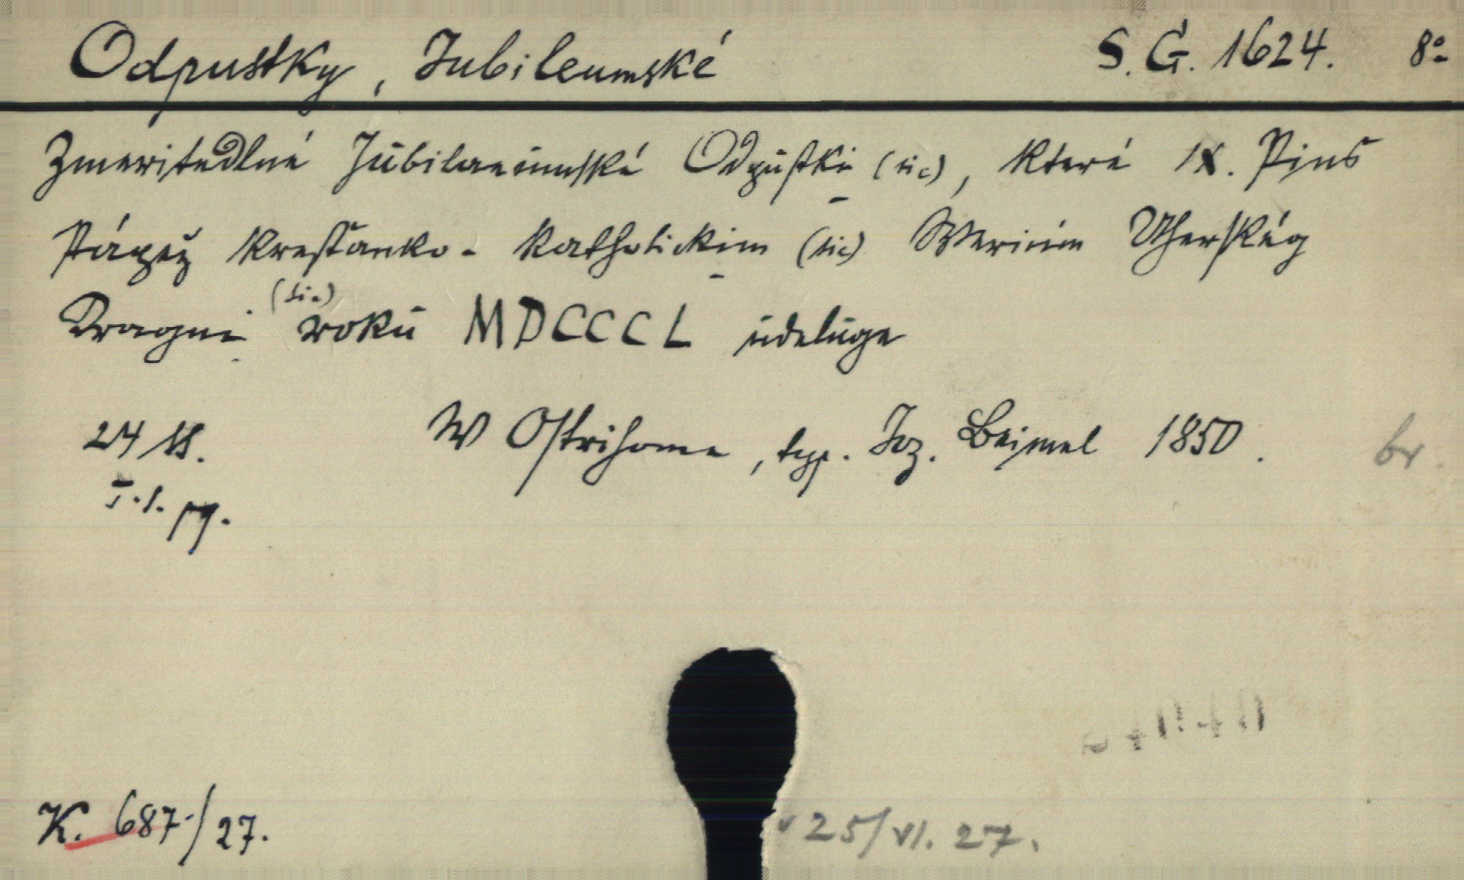 Odpustky, Jubileumské S. G. 1624. 8º
Zmeritedlné Jubilaeumské Odpustki (sic), které IX. Pius
Pápež kresťanko-katholickim (sic) Wericim Uherskég
Dragni (sic) roku MDCCCL udeluge
24 ss. W Ostrihome, typ. Joz. Beimel 1850. br.
K. 687/27. 25/VI. 27.